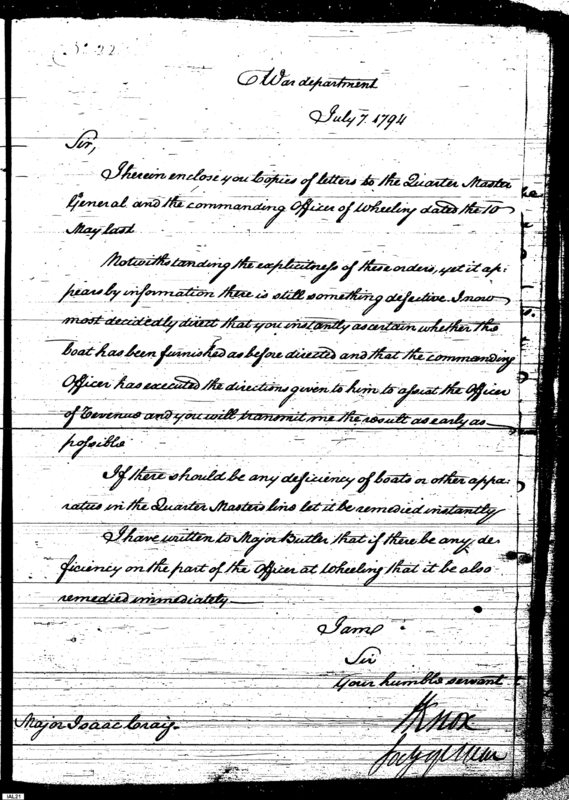 No 22
War department
July 7. 1794
Sir,
I herein enclose you Copies of letters to the Quarter Master
General and the commanding Officer of Wheeling dated the 10
May last
Notwithstanding the explicitness of these orders, yet it ap:
pears by information there is still something defective. I now
most decidedly direct that you instantly ascertain whether the
boat has been furnished as before directed and that the commanding
Officer has executed the directions given to him to assist the Officer
of Revenue and you will transmit me the result as early as
possible
If there should be any deficiency of boats or other appa:
ratus in the Quarter Masters line let it be remedied instantly
I have written to Major Butler that if there be any de:
ficiency on the part of the Officer at Wheeling that it be also
remedied immediately
I am
Sir
Your humble servant
HKnox
Secy of War
Major Isaac Craig.
IAL21